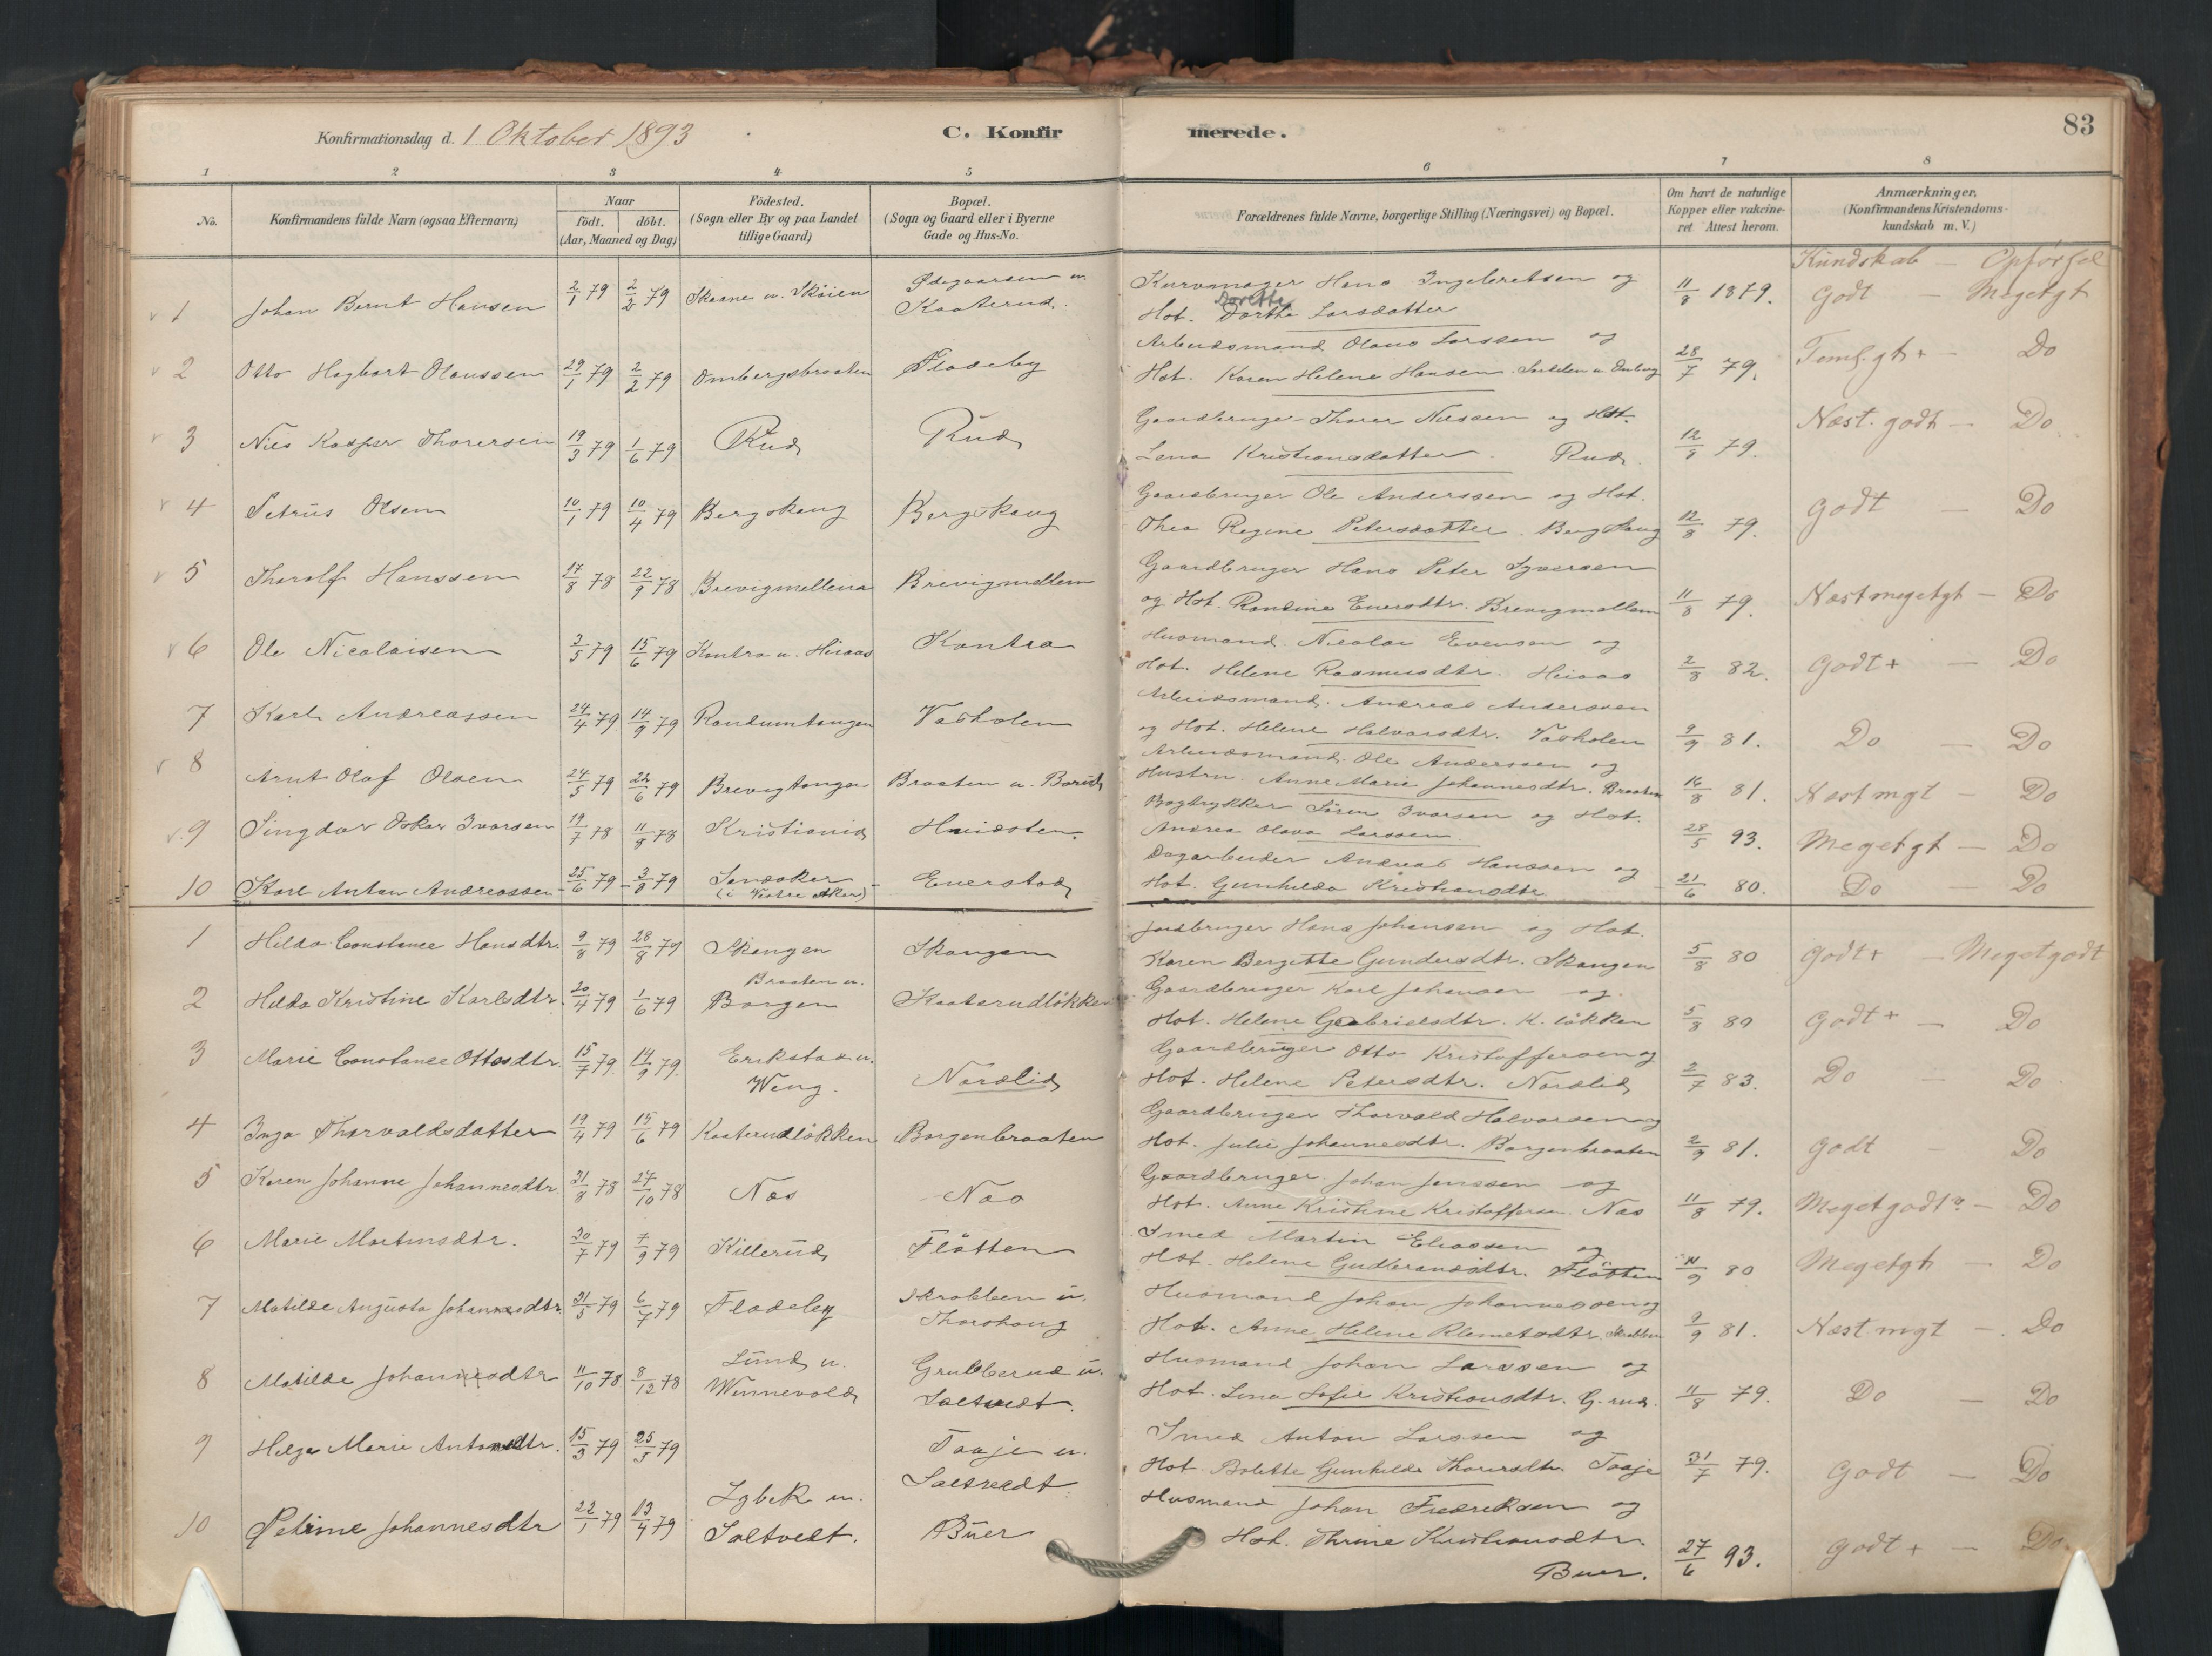 Konfirmationsdag d. 1 Oktober 1893 C. Konfir merede. 83
1 2 3 4 5 6 7 8
No. Konfirmandens fulde Navn (ogsaa Efternavn) Naar födt. döbt. (Aar, Maaned og Dag) Födested. (Sogn eller By og paa Landet tillige Gaard) Bopæl. (Sogn og Gaard eller i Byerne Gade og Hus-No. Forældrenes fulde Navne, borgerlige Stilling (Næringsvei) og Bopæl. Om havt de naturlige Kopper eller vakcineret Attest herom. Anmærkninger. (Konfirmandens Kristendomskundskab m.V.)
Kundskab — Opförsel
1 Johan Bernt Hansen 2/1 79 2/2 79 Skaane u. Skõien Ødegaarden u. Kaaterud. Kurvmager Hans Ingebretsen og
Hst. Dorthe Larsdatter 11/8 1879. Godt — Megetgt
2 Otto Hagbart Olaussen 29/1 79 2/2 79 Ombergsbraaten Fladeby Arbeidsmand Olaus Larssen og
Hst. Karen Helene Hansen. 28/7 79. Teml. gt+ — Do
3 Nils Kasper Thorersen 19/3 79 1/6 79 Rud Rud Gaardbruger Thorer Nilssen og Hst.
Lena Kristiansdatter. Rud. 12/8 79. Næst. godt — Do
4 Petrus Olsen 10/1 79 10/4 79 Bergskaug Bergskaug Gaardbruger Ole Anderssen og Hst.
Thea Regine Petersdatter. Bergskaug 12/8 79. Godt — Do
5 Tharolf Hanssen 17/8 78 22/9 78 Brevigmellem Brevigmellem Gaardbruger Hans Peter Syversen
og Hst. Randine Enersdtr. Brevigmellem 11/8 79. Næstmegetgt — Do
6 Ole Nicolaisen 3/5 79 15/6 79 Kontra u. Heiaas Kontra Husmand Nicolai Evensen og
Hst. Helene Rasmusdtr. Heiaas 2/8 82. Godt+ — Do
7 Karl Andreassen 24/4 79 14/9 79 Randumtangen Vasholen Arbeidsmand. Andreas Anderssen
og Hst. Helene Halvorsdtr. Vasholen 9/9 81. Do — Do
8 Arnt Olaf Olsen 24/5 79 22/6 79 Brevigtangen Braaten u. Borud Arbeidsmand. Ole Anderssen og
Hustru. Anne Marie Johannesdtr. Braaten 16/8 81. Næst mgt — Do
9 Singdar Oskar Ivarsen 19/7 78 11/8 78 Kristiania Hvidsten. Bogtrykker Sören Ivarsen og Hst.
Andrea Olava Larssen. 28/5 93. Megetgt — Do
10 Karl Anton Andreassen 25/6 79 3/8 79 Sandaker (i Vestre Aker) Enerstad Dagarbeider Andreas Hanssen og
Hst. Gunhilda Kristiansdtr 21/6 80. Do Do
1 Hilda Constance Hansdtr. 9/8 79 28/8 79 Skangen Skaugen Jordbruger Hans Johansen og Hst.
Karen Bergitte Gundersdtr. Skaugen 5/8 80 Godt+ — Megetgodt
2 Hilda Kristine Karlsdtr. 20/4 79 1/6 79 Braaten u. Borgen Kaaterudlökken Gaardbruger Karl Johansen og
Hst. Helene Gabrielsdtr. K. lökken 5/8 80 Godt+ — Do
3 Marie Constance Ottosdtr. 15/7 79. 14/9 79. Erikstad u. Weng. Nordlid Gaardbruger Otto Kristoffersen og
Hst. Helene Petersdtr. Nordlid 2/7 83. Do — Do
4 Inga Thorvaldsdatter 19/4 79 15/6 79 Kaaterudlökken Borgenbraaten Gaardbruger Thorvald Halvorsen og
Hst. Julie Johannesdtr. Borgenbraaten 2/9 81. Godt — Do
5 Karen Johanne Johannesdtr. 31/8 78 27/10 78 Næs Næs Gaardbruger Johan Jenssen og
Hst. Anne Kristine Kristoffersen. Næs 11/8 79. Megetgodt — Do
6 Marie Martinsdtr. 30/7 79 7/9 79 Killerud Flåtten Smed Martin Eliassen og
Hst. Helene Gudbrandsdtr. Flåtten 11/9 80 Megetgt — Do
7 Matilde Augusta Johannesdtr 31/5 79 6/7 79 Fladeby Skrabben u. Thorshaug Husmand Johan Johannessen og
Hst. Anne Helene Klemetsdtr. Skrabben 2/9 81. Næst mgt — Do
8 Matilde Johannesdtr 11/10 78 8/12 78 Lund u. Winnevold Grubberud u. Saltvedt. Husmand Johan Larssen og
Hst. Lina Sofie Kristiansdtr. G. rud. 11/8 79. Do — Do
9 Helga Marie Antonsdtr. 15/3 79 25/5 79 Taaje u. Saltvedt. Smed Anton Larssen og
Hst. Bolette Gunhilda Thorersdtr. Taaje 31/7 79. Godt — Do
10 Petrine Johannesdtr 22/1 79 13/4 79 Igbek u. Saltvedt. Buer Husmand Johan Fredriksen og
Hst. Thrine Kristiansdtr.
Buer. 27/6 93. Godt+ — Do